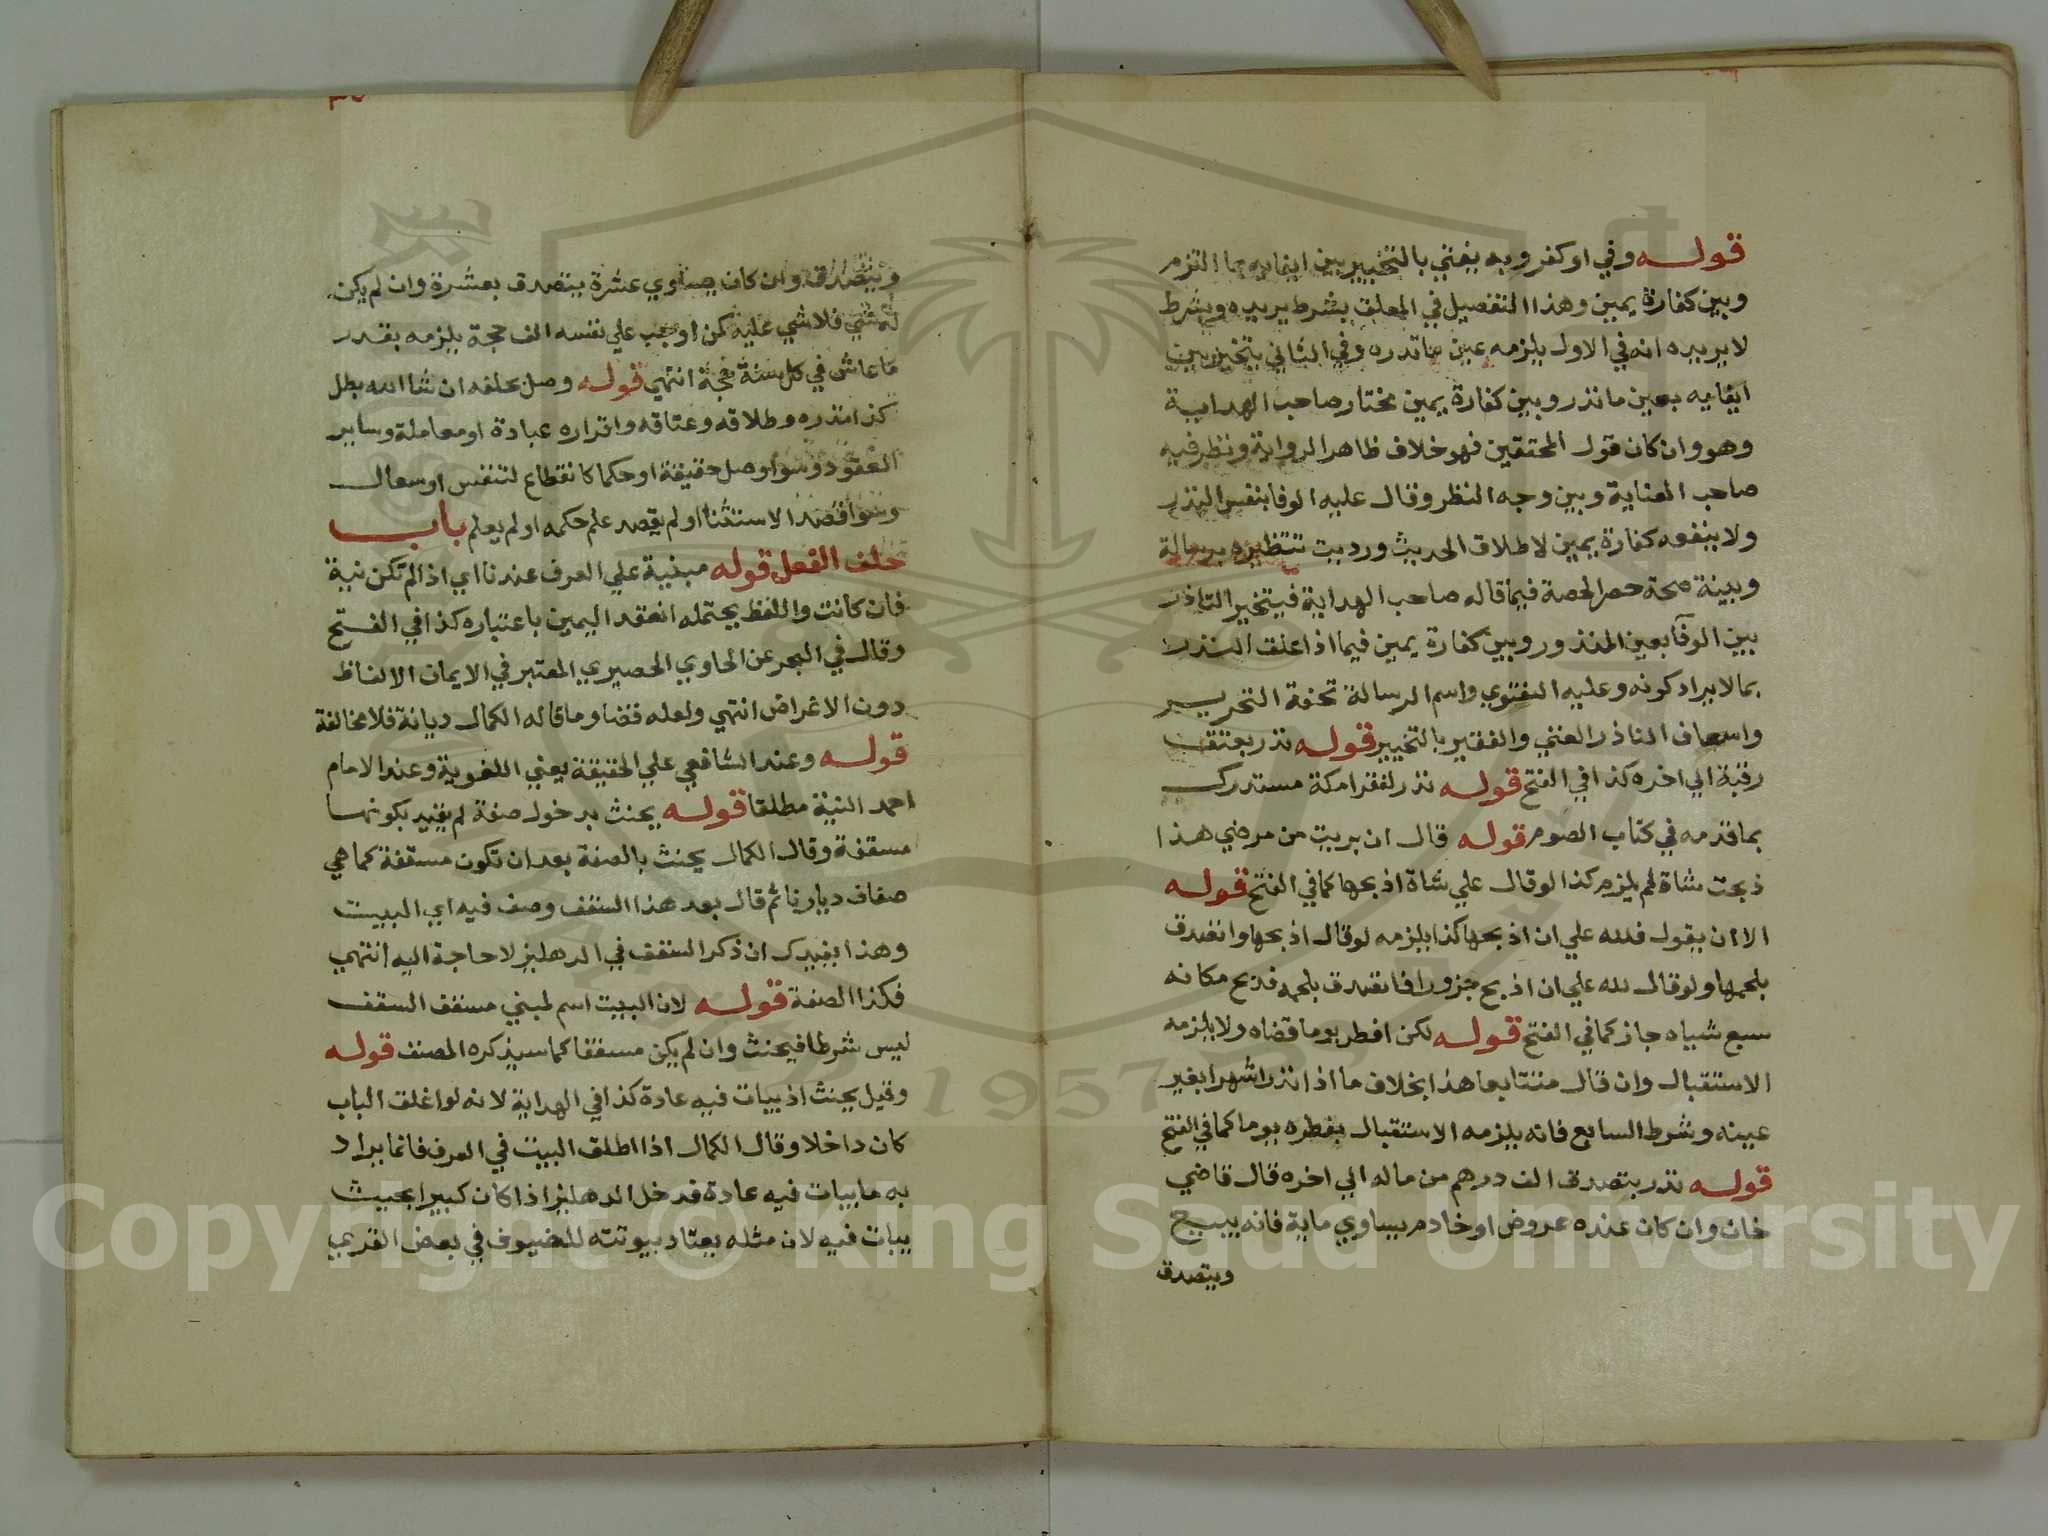 قوله وفي او كفر وبه يفتي بالتخيير بين ايفايه بما التزم
وبين كفارة يمين وهذا التفصيل في المعلق بشرط يريده وبشرط
لا يريده انه في الاول يلزمه عين ما نذره وفي الثاني يتخير بين
ايفايه بعين ما نذر وبين كفارة يمين مختار صاحب الهداية
وهو وان كان قول المحققين فهو خلاف ظاهر الرواية ونظر فيه
صاحب العناية وبين وجه النظر وقال عليه الوفا بنفس النذر
ولا ينفعه كفارة يمين لاطلاق الحديث ورديت تنظيره برسالة
وبينة صحة حصر الحصة فيما قاله صاحب الهداية فيتخير الناذر
بين الوفآ بعين المنذور وبين كفارة يمين فيما اذا علق النذر
بما لا يراد كونه وعليه الفتوي واسم الرسالة تحفة التحرير
واسعاف الناذر الغني والفقير بالتخيير قوله نذر بعتق
رقبة الي اخره كذا في الفتح قوله نذر لفقرا مكة مستدرك
بما قدمه في كتاب الصوم قوله قال ان بريت من مرضي هذا
ذبحت شاة لم يلزم كذا لو قال علي شاة اذبحها كما في الفتح قوله
الا ان يقول فلله علي ان اذبحها كذا يلزمه لو قال اذبحها واتصدق
بلحمها ولو قال لله علي ان اذبح جزورا فاتصدق بلحمه فذبح مكانه
سبع شياه جاز كما في الفتح قوله لكن افطر يوما قضاه ولا يلزمه
الاستقبال وان قال متتابعا هذا بخلاف ما اذا نذر شهرا بغير
عينه وشرط التتابع فانه يلزمه الاستقبال بفطره يوما كما في الفتح
قوله نذر بتصدق الف درهم من ماله الي اخره قال قاضي
خان وان كان عنده عروض او خادم يساوي ماية فانه يبيع
ويتصدق
ويتصدق وان كان يساوي عشرة يتصدق بعشرة وان لم يكن
له شي فلا شي عليه كمن اوجب علي نفسه الف حجة يلزمه بقدر
ما عاش في كل سنة حجة انتهي قوله وصل بحلفه ان شا الله بطل
كذا نذره وطلاقه وعتاقه واقراره عبادة او معاملة وساير
العقود وسوا وصل حقيقة او حكما كانقطاع لتنفس او سعال
وسوا قصد الاستثنا او لم يقصد علم حكمه او لم يعلم باب
حلف الفعل قوله مبنية علي العرف عندنا اي اذا لم تكن نية
فان كانت واللفظ يحتمله انعقد اليمين باعتباره كذا في الفتح
وقال في البحر عن الحاوي الحصيري المعتبر في الايمان الالفاظ
دون الاغراض انتهي ولعله قضا وما قاله الكمال ديانة فلا مخالفة
قوله وعند الشافعي علي الحقيقة يعني اللغوية وعند الامام
احمد النية مطلقا قوله يحنث بدخول صفة لم يقيد بكونها
مسقفة وقال الكمال يحنث بالصفة بعد ان تكون مسقفة كما هي
صفاف ديارنا ثم قال بعد هذا السقف وصف فيه اي البيت
وهذا يفيدك ان ذكر السقف في الدهليز لا حاجة اليه انتهي
فكذا الصفة قوله لان البيت اسم لمبني مسقف السقف
ليس شرطا فيحنث وان لم يكن مسقفا كما سيذكره المصنف قوله
وقيل يحنث اذ يبات فيه عادة كذا في الهداية لانه لو اغلق الباب
كان داخلا وقال الكمال اذا اطلق البيت في العرف فانما يراد
به ما يبات فيه عادة فدخل الدهليز اذا كان كبيرا بحيث
يبات فيه لان مثله يعتاد بيوتته للضيوف في بعض القري
Copyright © King Saud University
1957